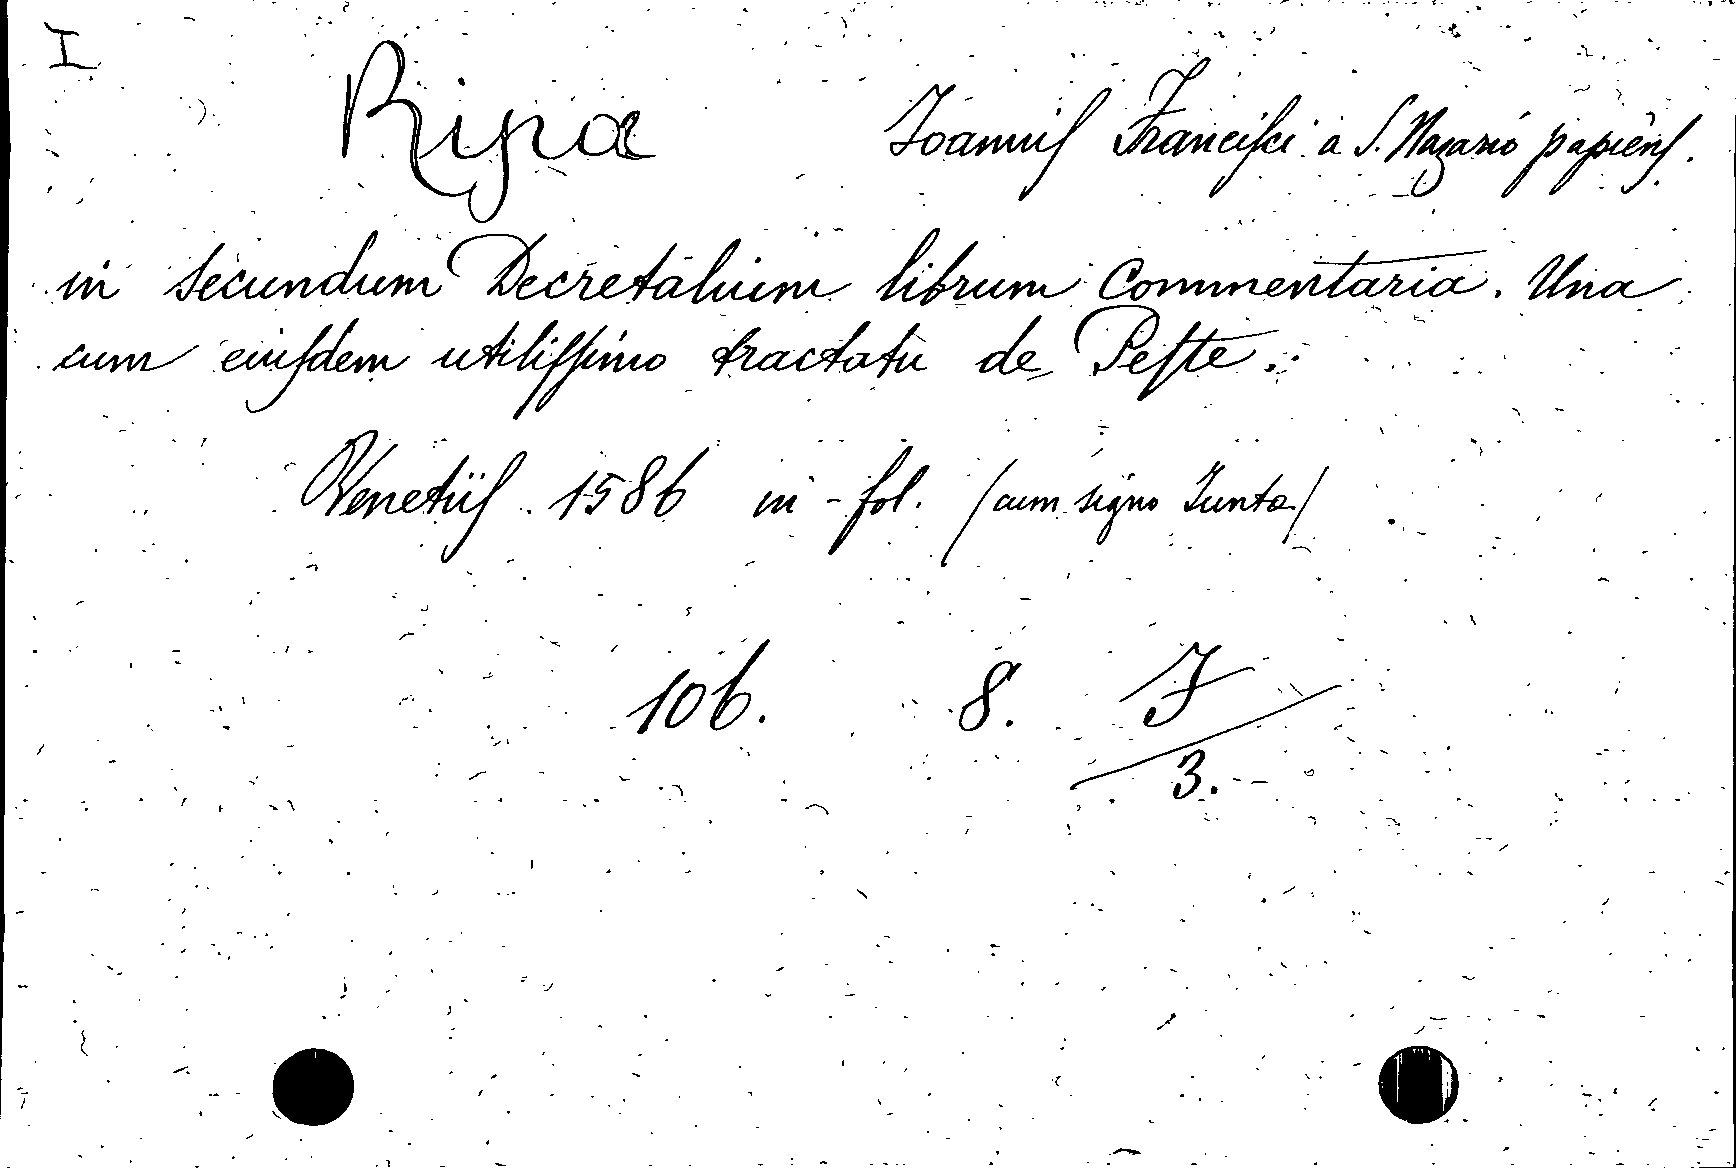 I
Ripa Joannis Francisci a S. Nazario papiens.
in secundum Decretalium librum Commentaria. Una
cum eiusdem utilissimo tractatu de Peste.
Venetiis 1586 in-fol. /cum signo Iunta/
106. 8. J
3.